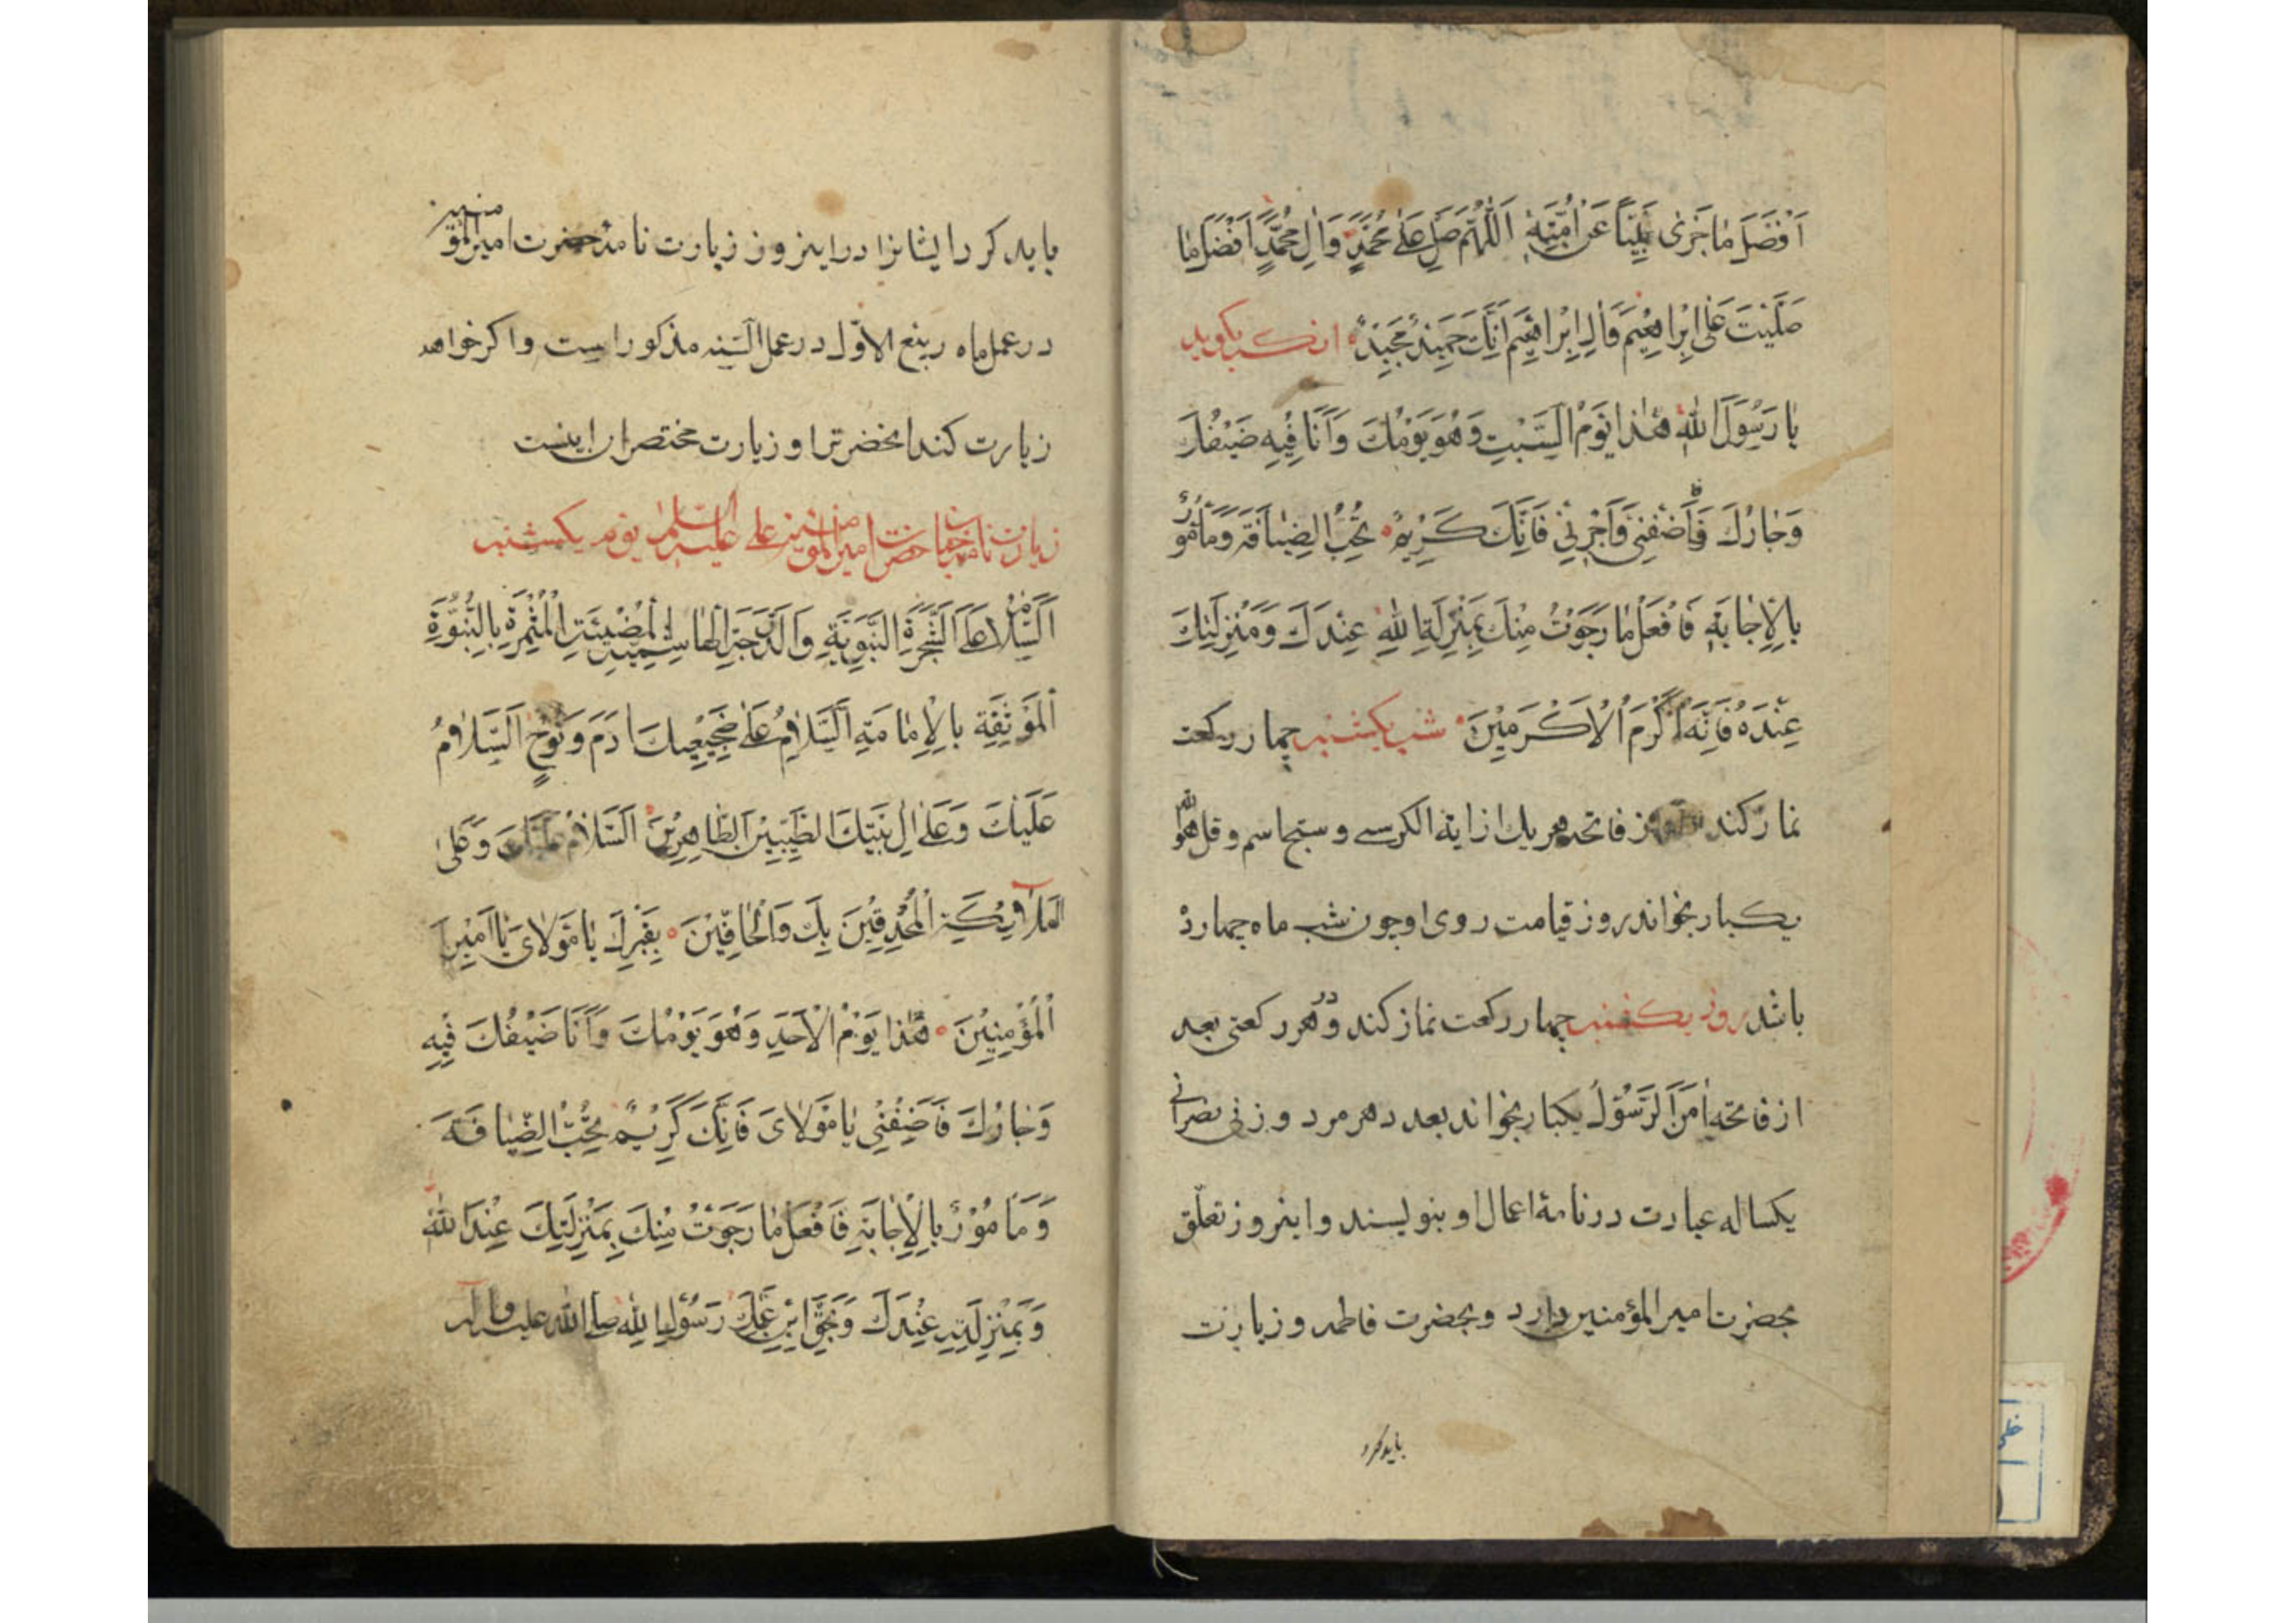 اَفْضَلَ مٰا جَزٰى نَبِيّاً عَنْ اُمَّتِهِ اَللّٰهُمَّ صَلِّ عَلٰى مُحَمَّدٍ وَاٰلِ مُحَمَّدٍ اَفْضَلَ مٰا
صَلَّيْتَ عَلٰى اِبْرٰاهِيْمَ وَاٰلِ اِبْرٰاهِيْمَ اِنَّكَ حَمِيْدٌ مَجِيْدٌ
يٰا رَسُوْلَ اللّٰهِ هٰذٰا يَوْمُ السَّبْتِ وَهُوَ يَوْمُكَ وَاَنَا فِيْهِ ضَيْفُكَ
وَجٰارُكَ فَاَضِفْنِىْ وَاَجِرْنِىْ فَاِنَّكَ كَرِيْمٌ تُحِبُّ الضِّيٰافَةَ وَمَاْمُوْرٌ
بِالْاِجٰابَةِ فَافْعَلْ مٰا رَجَوْتُ مِنْكَ بِمَنْزِلَةِ اللّٰهِ عِنْدَكَ وَمَنْزِلَتِكَ
عِنْدَهُ فَاِنَّهُ اَكْرَمُ الْاَكْرَمِيْنَ شب يكشنبه چهار ركعت
نماز كند فاتحه هر يك از اية الكرسى و سبح اسم و قل هو اللّه
يكبار بخواند روز قيامت روى او چون شب ماه چهارده
باشد روز يكشنبه چهار ركعت نماز كند در هر ركعتى بعد
از فاتحه اٰمَنَ الرَّسُوْلُ يكبار بخواند بعدد هر مرد و زنى نصرانى
يكساله عبادت در نامهٔ اعمال او بنويسند و اينروز تعلّق
بحضرت امير المؤمنين دارد و بحضرت فاطمه و زيارت
بايد كرد
بايد كرد ايشانرا در اينروز زيارت نامهٔ حضرت امير المؤمنين
در عمل ماه ربيع الاوّل در عمل السنه مذكور است و اكر خواهد
زيارت كند انحضرترا و زيارت مختصر ان اينست
زيارت نامه حضرت امير المؤمنين على عليه السلام يوم يكشنبه
اَلسَّلٰامُ عَلَى الشَّجَرَةِ النَّبَوِيَّةِ وَالدَّوْحَةِ الْهٰاشِمِيَّةِ الْمُضِيْئَةِ الْمُثْمِرَةِ بِالنُّبُوَّةِ
الْمُوْنِقَةِ بِالْاِمٰامَةِ اَلسَّلٰامُ عَلٰى ضَجِيْعَيْكَ اٰدَمَ وَنُوْحٍ اَلسَّلٰامُ
عَلَيْكَ وَعَلٰى اٰلِ بَيْتِكَ الطَّيِّبِيْنَ الطّٰاهِرِيْنَ اَلسَّلٰامُ عَلَيْكَ وَعَلٰى
الْمَلٰآئِكَةِ الْمُحْدِقِيْنَ بِكَ وَالْحٰافِّيْنَ بِقَبْرِكَ يٰا مَوْلٰاىَ يٰا اَمِيْرَ
الْمُؤْمِنِيْنَ هٰذٰا يَوْمُ الْاَحَدِ وَهُوَ يَوْمُكَ وَاَنَا ضَيْفُكَ فِيْهِ
وَجٰارُكَ فَاَضِفْنِىْ يٰا مَوْلٰاىَ فَاِنَّكَ كَرِيْمٌ تُحِبُّ الضِّيٰافَةَ
وَمَاْمُوْرٌ بِالْاِجٰابَةِ فَافْعَلْ مٰا رَجَوْتُ مِنْكَ بِمَنْزِلَتِكَ عِنْدَ اللّٰهِ
وَبِمَنْزِلَتِهِ عِنْدَكَ وَبِحَقِّ ابْنِ عَمِّكَ رَسُوْلِ اللّٰهِ صلى اللّه عليه و اله